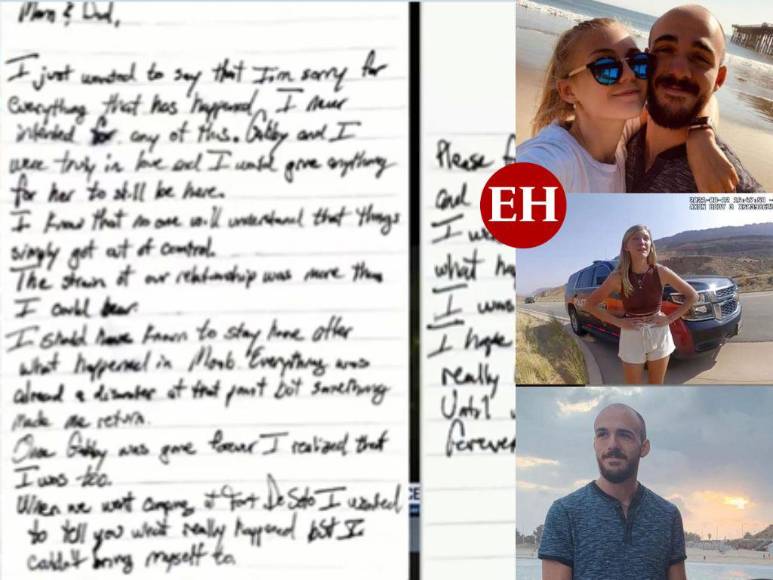 Mom & Dad,
I just wanted to say that I'm sorry for
everything that has happened. I never
intended for any of this. Gabby and I
were truly in love and I would give anything
for her to still be here.
I know that no one will understand that things
simply got out of control.
The strain of our relationship was more than
I could bear.
I should have known to stay home after
what happened in Moab. Everything was
already a disaster at that point but something
made me return.
Once Gabby was gone forever I realized that
I was too.
When we went camping at Fort De Soto I wanted
to tell you what really happened but I
couldn't bring myself to.
Please
and
I
what
I was
I hope
really
Until
forever
CE
EH